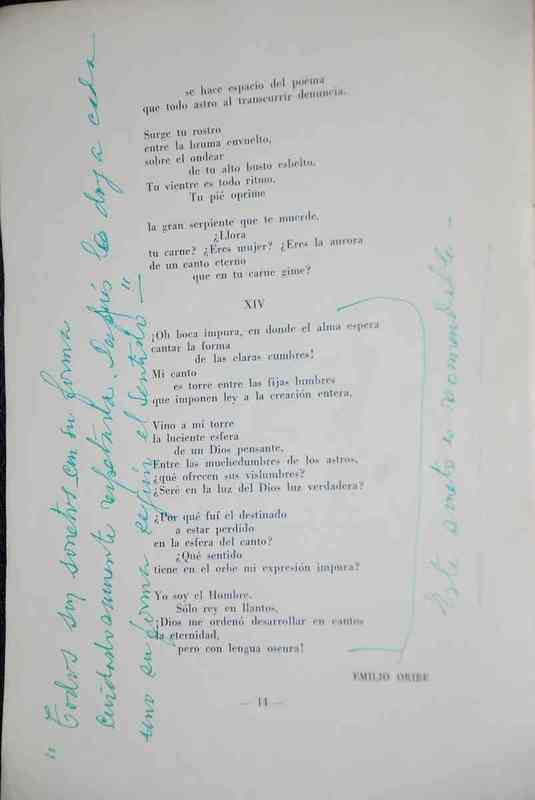 se hace espacio del poema
que todo astro al transcurrir denuncia.
Surge tu rostro
entre la bruma envuelto,
sobre el ondear
de tu alto busto esbelto.
Tu vientre es todo ritmo.
Tu pié oprime
la gran serpiente que te muerde.
¿Llora
tu carne? ¿Eres mujer? ¿Eres la aurora
de un canto eterno
que en tu carne gime?
XIV
¡Oh boca impura, en donde el alma espera
cantar la forma
de las claras cumbres!
Mi canto
es torre entre las fijas lumbres
que imponen ley a la creación entera.
Vino a mi torre
la luciente esfera
de un Dios pensante.
Entre las muchedumbres de los astros,
¿qué ofrecen sus vislumbres?
¿Seré en la luz del Dios luz verdadera?
¿Por qué fuí el destinado
a estar perdido
en la esfera del canto?
¿Qué sentido
tiene en el orbe mi expresión impura?
Yo soy el Hombre.
Sólo rey en llantos.
¡Dios me ordenó desarrollar en cantos
la eternidad,
pero con lengua oscura!
EMILIO ORIBE
— 14 —
"Todos son sonetos con su forma
cuidadosamente respetada. Después les doy a cada
uno su forma según el sentido—"
Este soneto es recomendable—